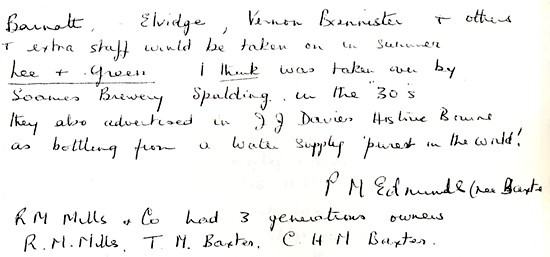 Barnatt, Elvidge, Vernon Bannister + others
+ extra staff would be taken on in summer
Lee + Green I think was taken over by
Soames Brewery Spalding in the "30's
They also advertised in J J Davies Bourne
as bottling from a water supply 'purest in the world'!
P M Edmunds (nee Baxte
R M Mills & Co had 3 generations owners
R. M. Mills, T. M. Baxter, C H M Baxter.